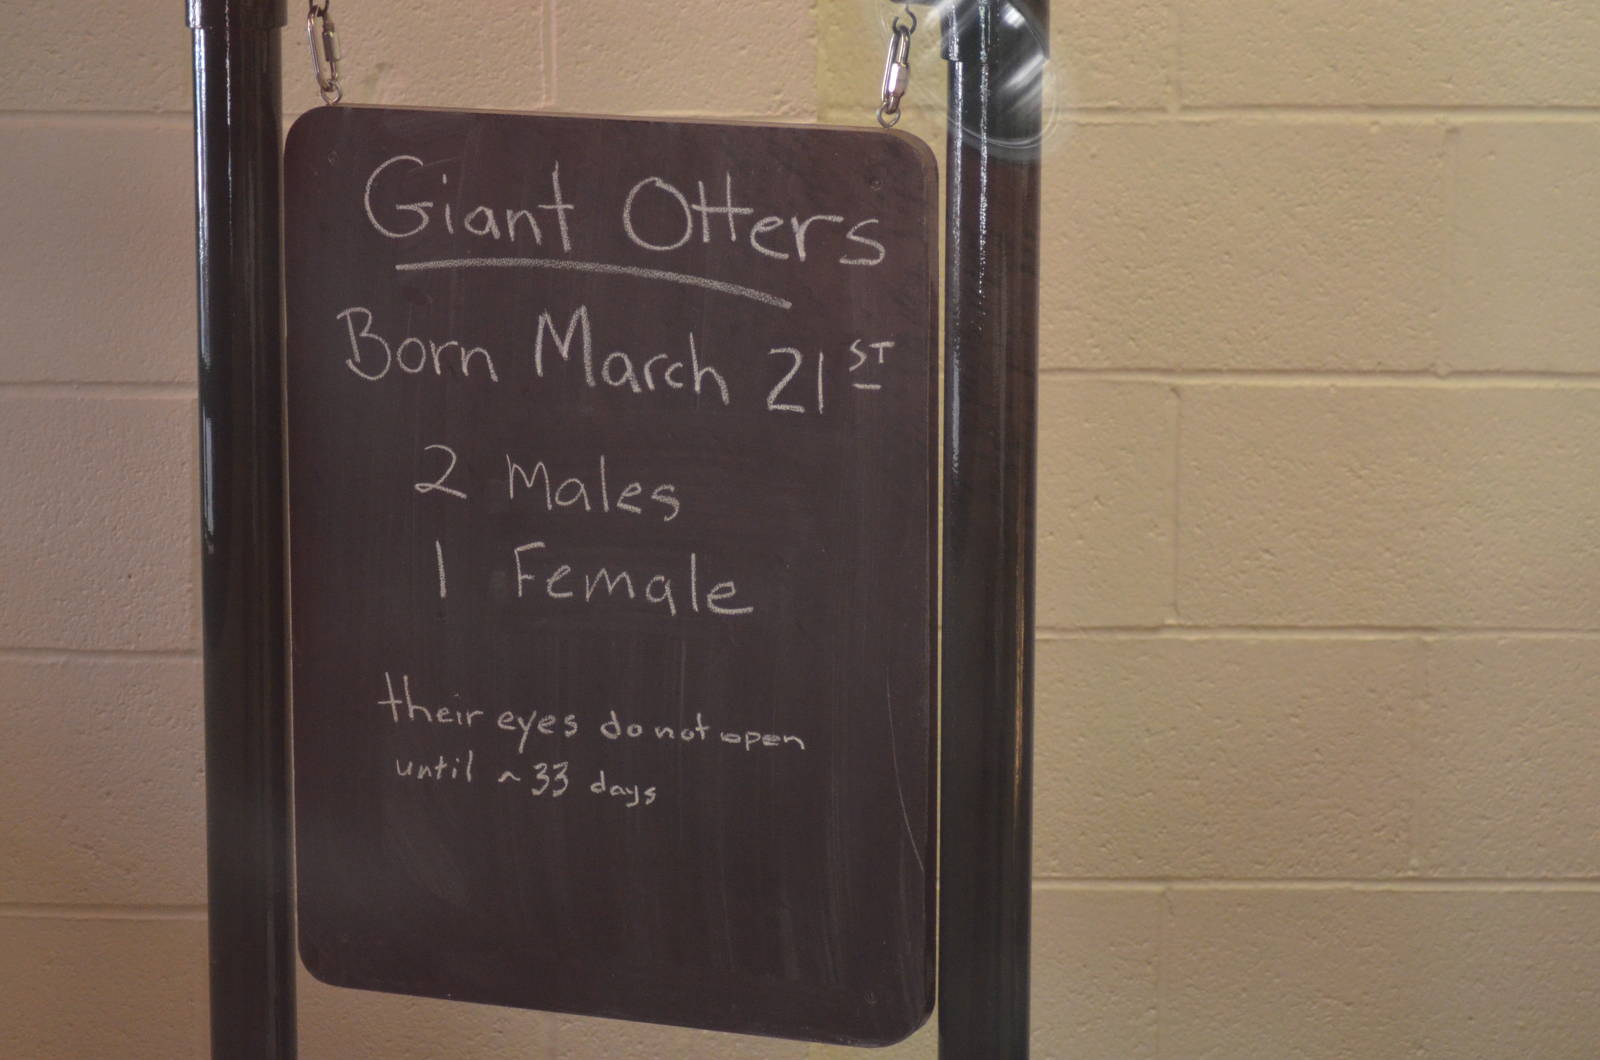 Giant Otters
Born March 21ST
2 Males
1 Female
their eyes do not open
until ~33 days